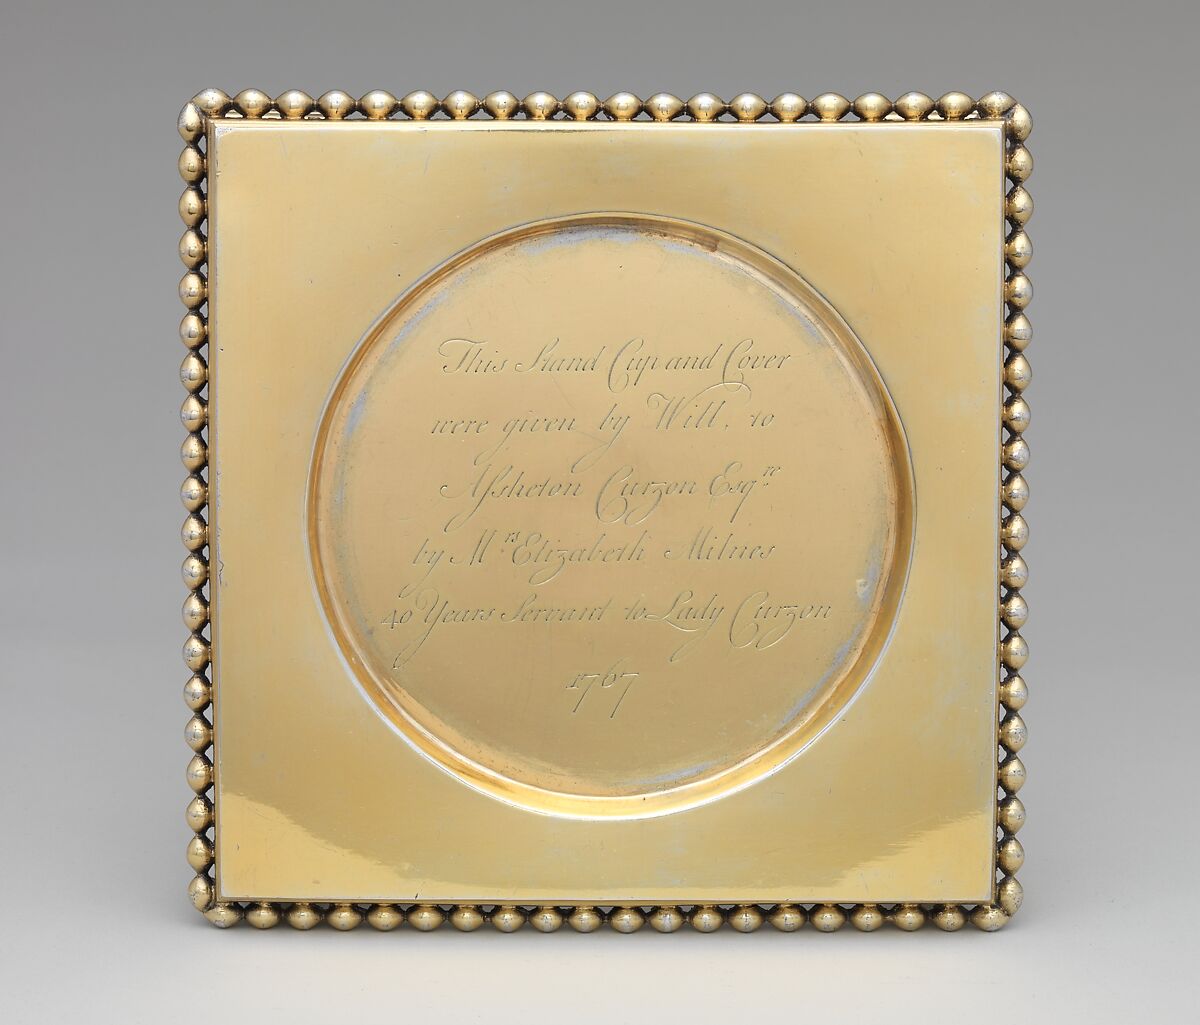 This Stand Cup and Cover
were given by Will, to
Aſsheton Curzon Esqre
by Mrs Elizabeth Milnes
40 Years Servant to Lady Curzon
1767